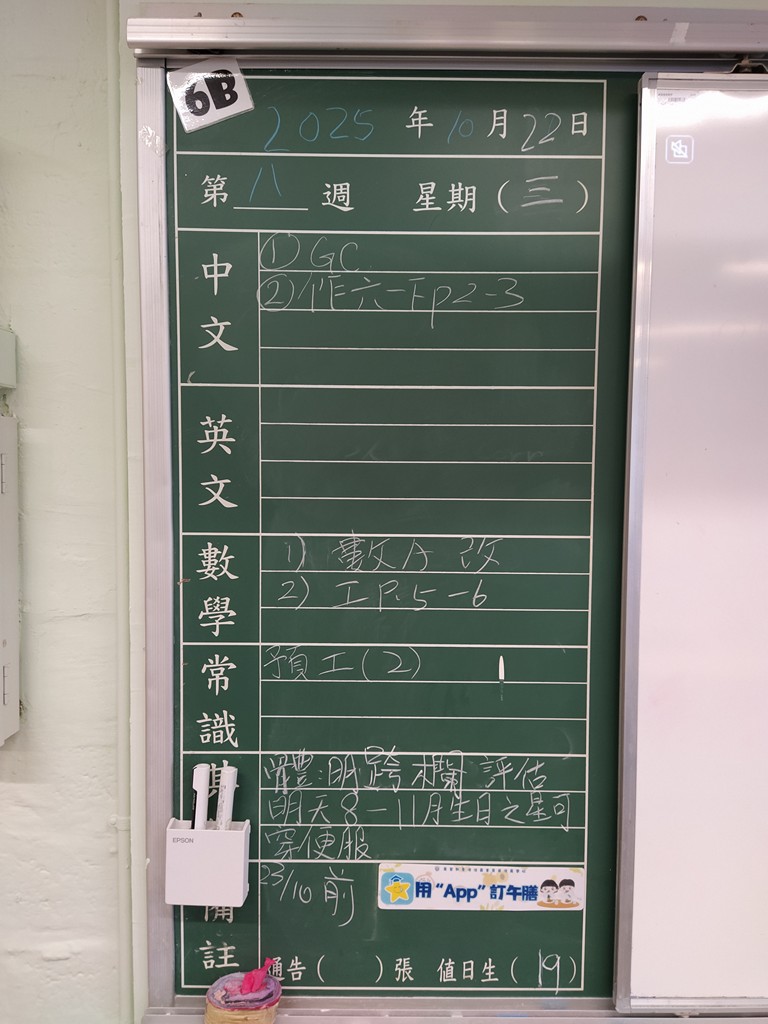 6B
2025 年 10 月 22 日
第 八 週 星期 ( 三 )
中文
① GC
② 作六一下p2-3
英文
數學
1) 數A 改
2) 工P.5-6
常識
預工(2)
體:明跨欄評估
明天8-11月生日之星可
穿便服
EPSON
備註
23/10 前
用“App”訂午膳
通告( )張 值日生( 19 )